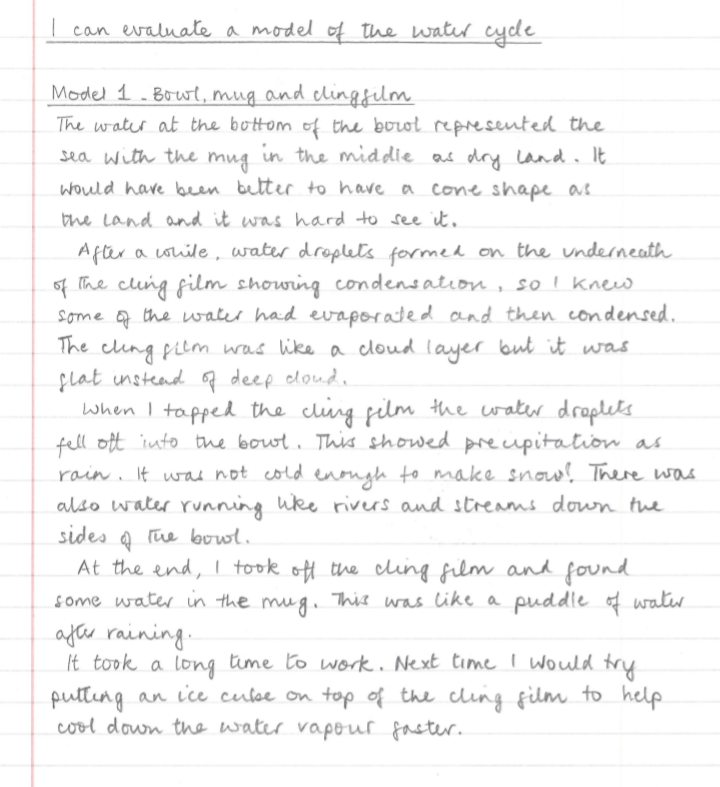 I can evaluate a model of the water cycle
Model 1 - Bowl, mug and clingfilm
The water at the bottom of the bowl represented the
sea with the mug in the middle as dry land. It
would have been better to have a cone shape as
the land and it was hard to see it.
After a while, water droplets formed on the underneath
of the cling film showing condensation, so I knew
some of the water had evaporated and then condensed.
The cling film was like a cloud layer but it was
flat instead of deep cloud.
When I tapped the cling film the water droplets
fell off into the bowl. This showed precipitation as
rain. It was not cold enough to make snow! There was
also water running like rivers and streams down the
sides of the bowl.
At the end, I took off the cling film and found
some water in the mug. This was like a puddle of water
after raining.
It took a long time to work. Next time I would try
putting an ice cube on top of the cling film to help
cool down the water vapour faster.